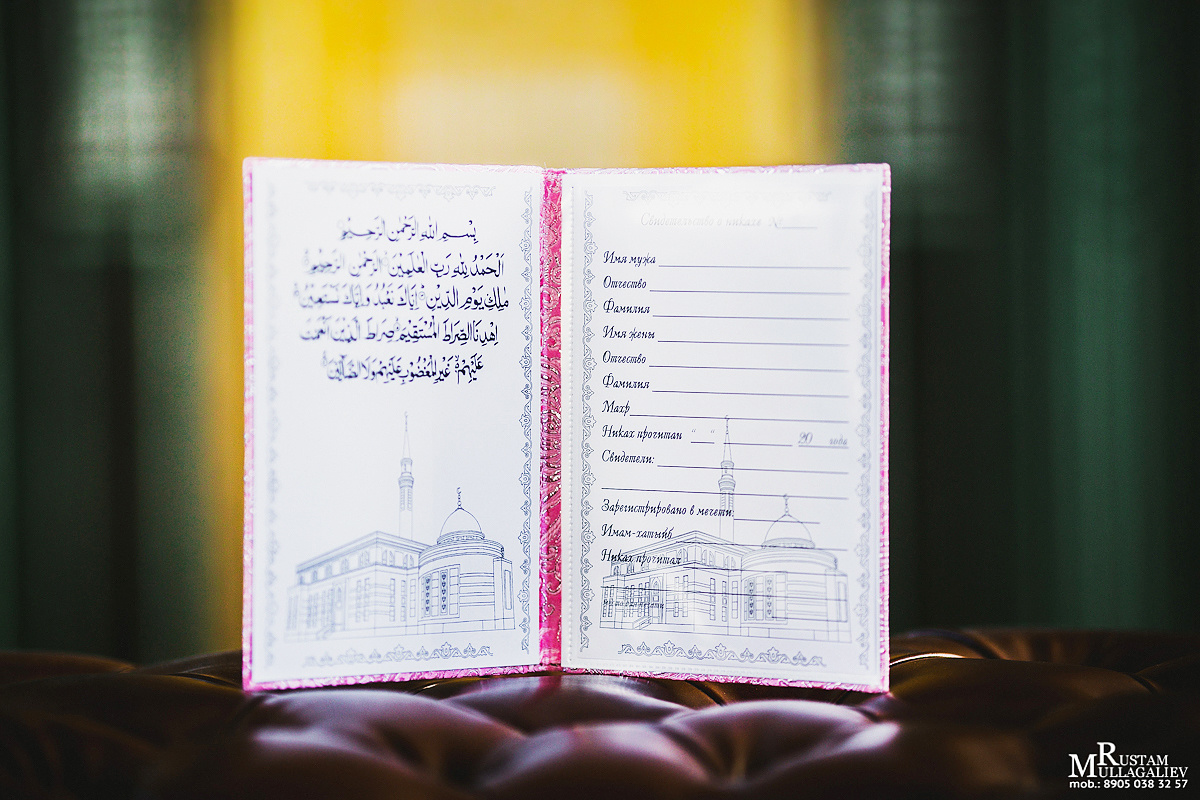 بِسْمِ اللهِ الرَّحْمٰنِ الرَّحِيْمِ
اَلْحَمْدُ لِلّٰهِ رَبِّ الْعٰلَمِيْنَ الرَّحْمٰنِ الرَّحِيْمِ
مٰلِكِ يَوْمِ الدِّيْنِ اِيَّاكَ نَعْبُدُ وَاِيَّاكَ نَسْتَعِيْنُ
اِهْدِنَا الصِّرَاطَ الْمُسْتَقِيْمَ صِرَاطَ الَّذِيْنَ اَنْعَمْتَ
عَلَيْهِمْ غَيْرِ الْمَغْضُوْبِ عَلَيْهِمْ وَلَا الضَّآلِّيْنَ
Свидетельство о никахе №
Имя мужа
Отчество
Фамилия
Имя жены
Отчество
Фамилия
Махр
Никах прочитан " " 20 года
Свидетели:
Зарегистрировано в мечети:
Имам-хатыйб
Никах прочитал
Rustam
Mullagaliev
mob.: 8905 038 32 57